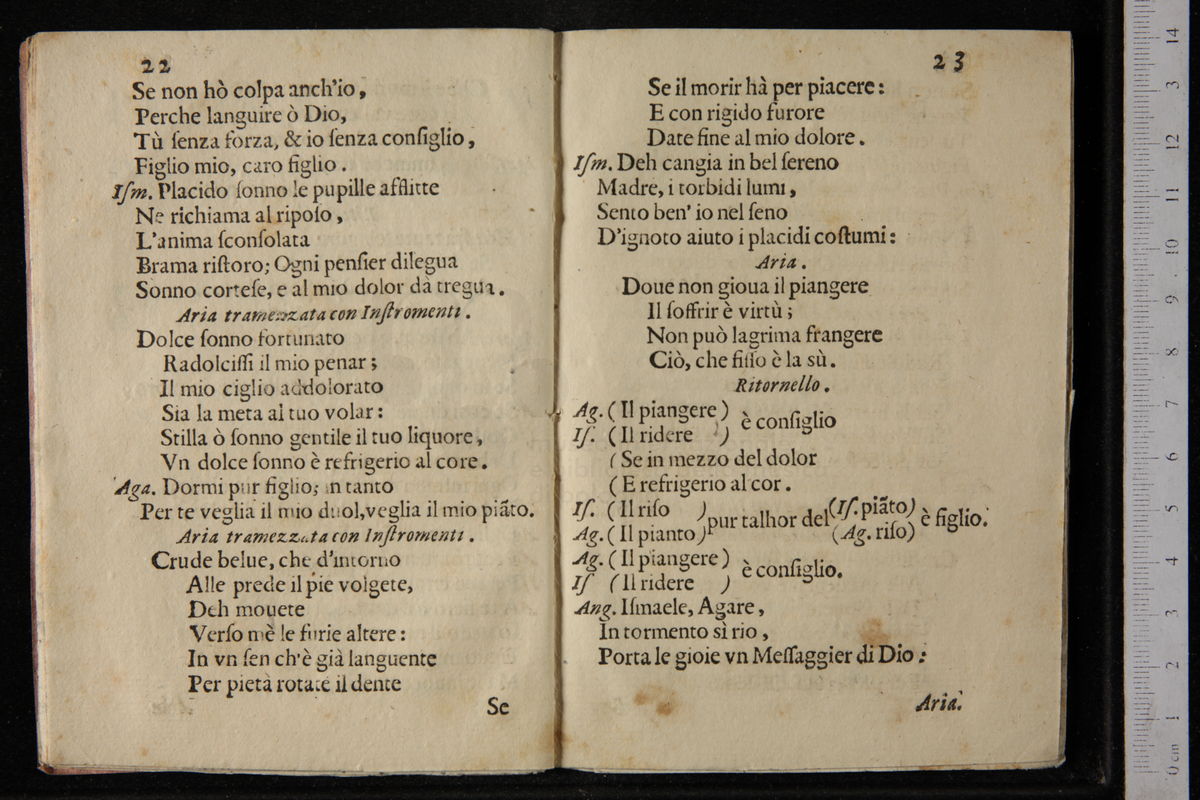 22
Se non hò colpa anch'io,
Perche languire ò Dio,
Tù ſenza forza, & io ſenza conſiglio,
Figlio mio, caro figlio.
Iſm. Placido ſonno le pupille afflitte
Ne richiama al ripoſo,
L'anima ſconſolata
Brama riſtoro; Ogni penſier dilegua
Sonno corteſe, e al mio dolor dà tregua.
Aria tramezzata con Inſtromenti.
Dolce ſonno fortunato
Radolciſſi il mio penar;
Il mio ciglio addolorato
Sia la meta al tuo volar:
Stilla ò ſonno gentile il tuo liquore,
Vn dolce ſonno è refrigerio al core.
Aga. Dormi pur figlio; in tanto
Per te veglia il mio duol, veglia il mio piãto.
Aria tramezzata con Inſtromenti.
Crude belue, che d'intorno
Alle prede il piè volgete,
Deh mouete
Verſo mè le furie altere:
In vn ſen ch'è già languente
Per pietà rotate il dente
Se
23
Se il morir hà per piacere:
E con rigido furore
Date fine al mio dolore.
Iſm. Deh cangia in bel ſereno
Madre, i torbidi lumi,
Sento ben' io nel ſeno
D'ignoto aiuto i placidi coſtumi:
Aria.
Doue non gioua il piangere
Il ſoffrir è virtù;
Non può lagrima frangere
Ciò, che fiſſo è la sù.
Ritornello.
Ag. (Il piangere)
è conſiglio
Iſ. (Il ridere )
(Se in mezzo del dolor
(E refrigerio al cor.
Iſ. (Il riſo )pur talhor del(Iſ. piãto) è figlio.
Ag. (Il pianto) (Ag. riſo)
Ag. (Il piangere)
è conſiglio.
Iſ (Il ridere )
Ang. Iſmaele, Agare,
In tormento sì rio,
Porta le gioie vn Meſſaggier di Dio:
Aria.
0 cm 1 2 3 4 5 6 7 8 9 10 11 12 13 14